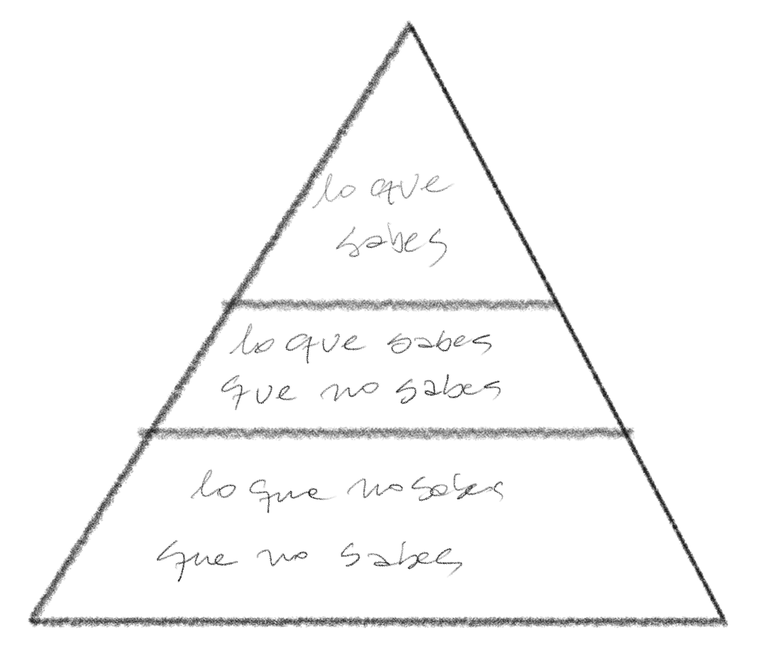 lo que
sabes
lo que sabes
que no sabes
lo que no sabes
que no sabes